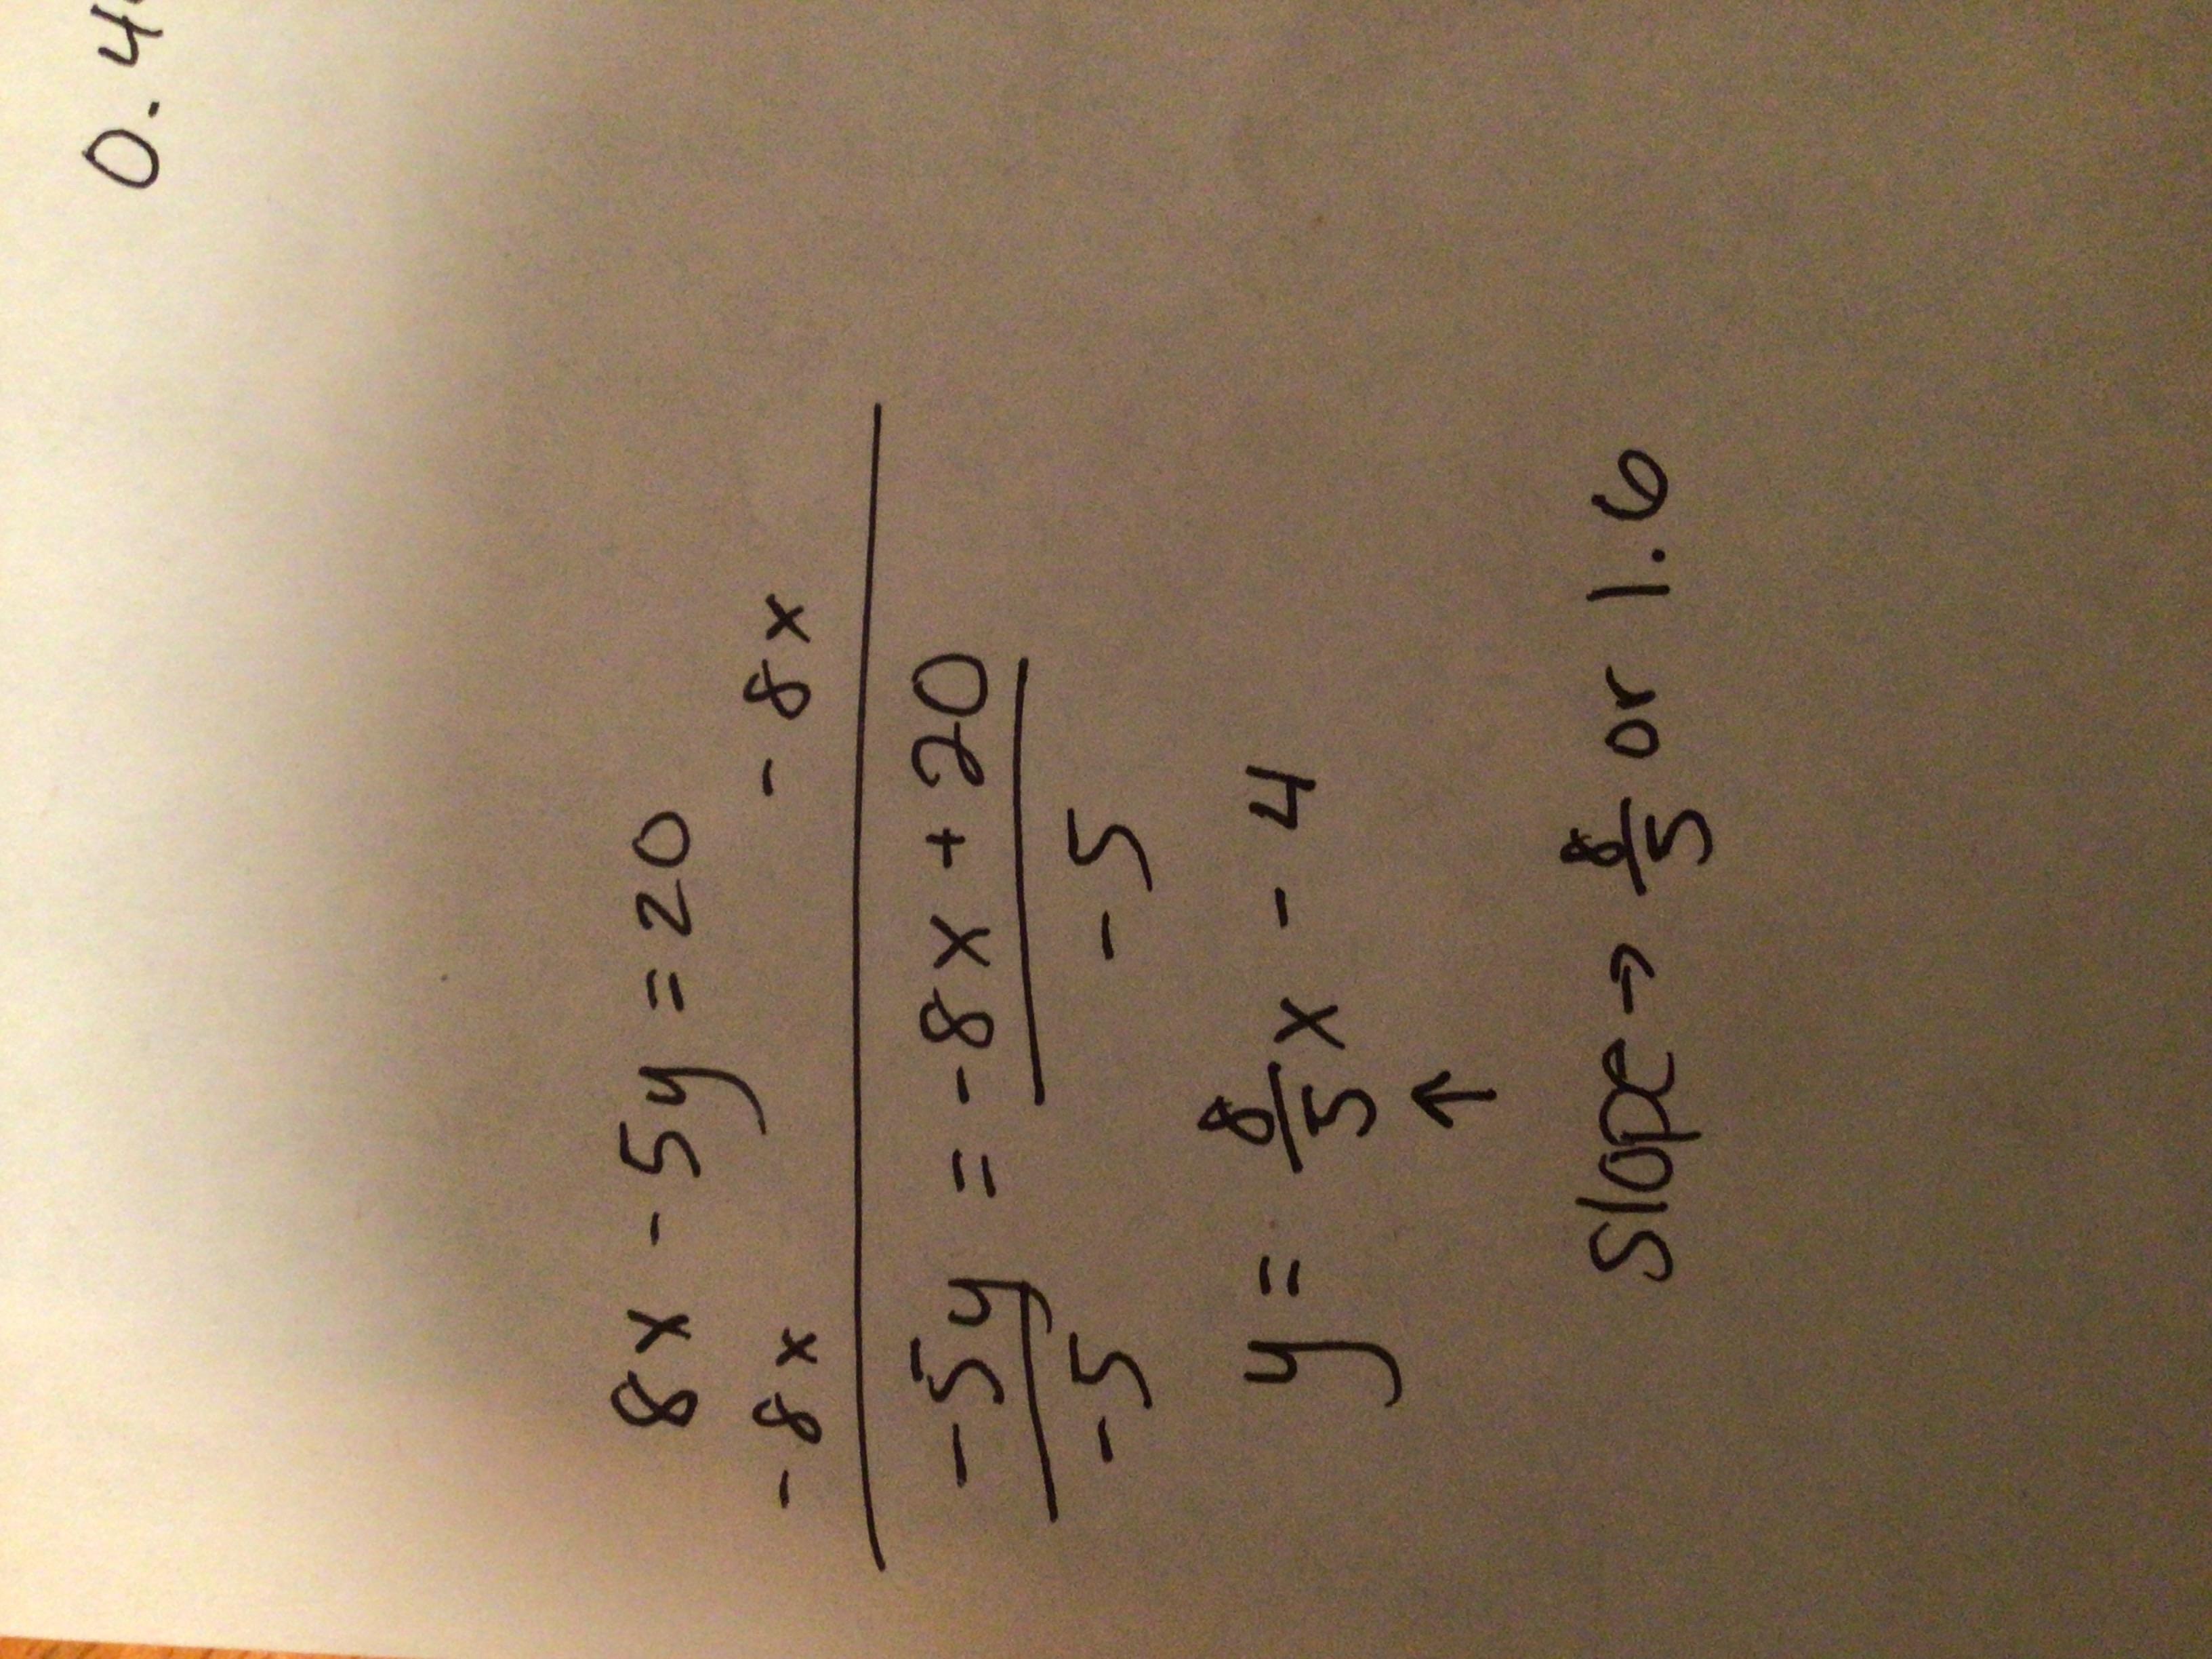 0.4
8x - 5y = 20
-8x - 8x
-5y = -8x + 20
-5 -5
y = 8/5 x - 4
↑
Slope → 8/5 or 1.6